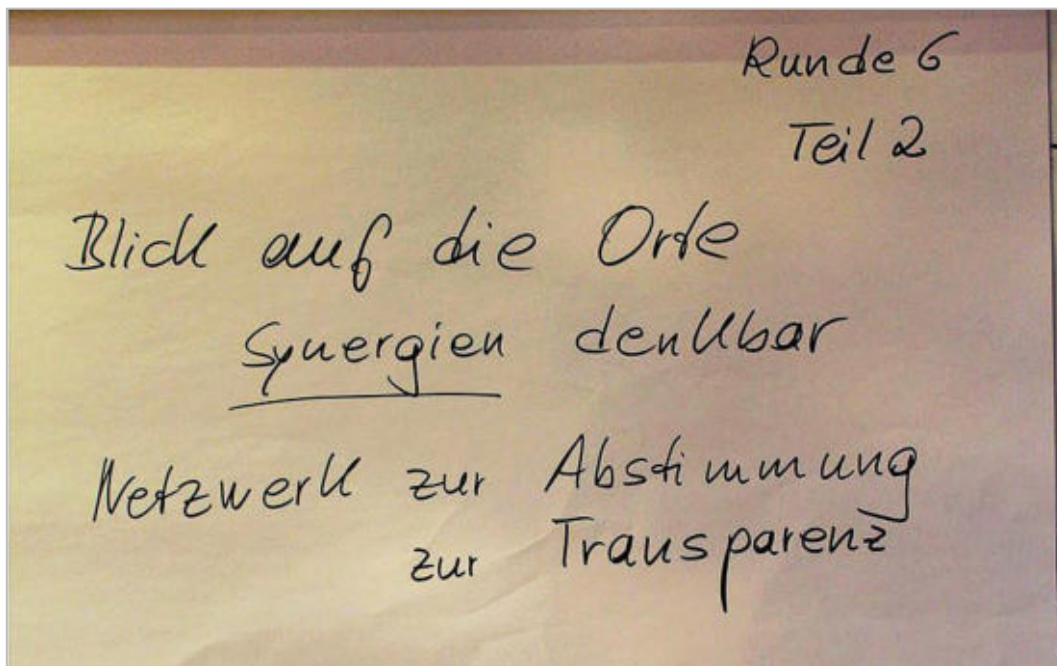 Runde 6
Teil 2
Blick auf die Orte
Synergien denkbar
Netzwerk zur Abstimmung
zur Transparenz